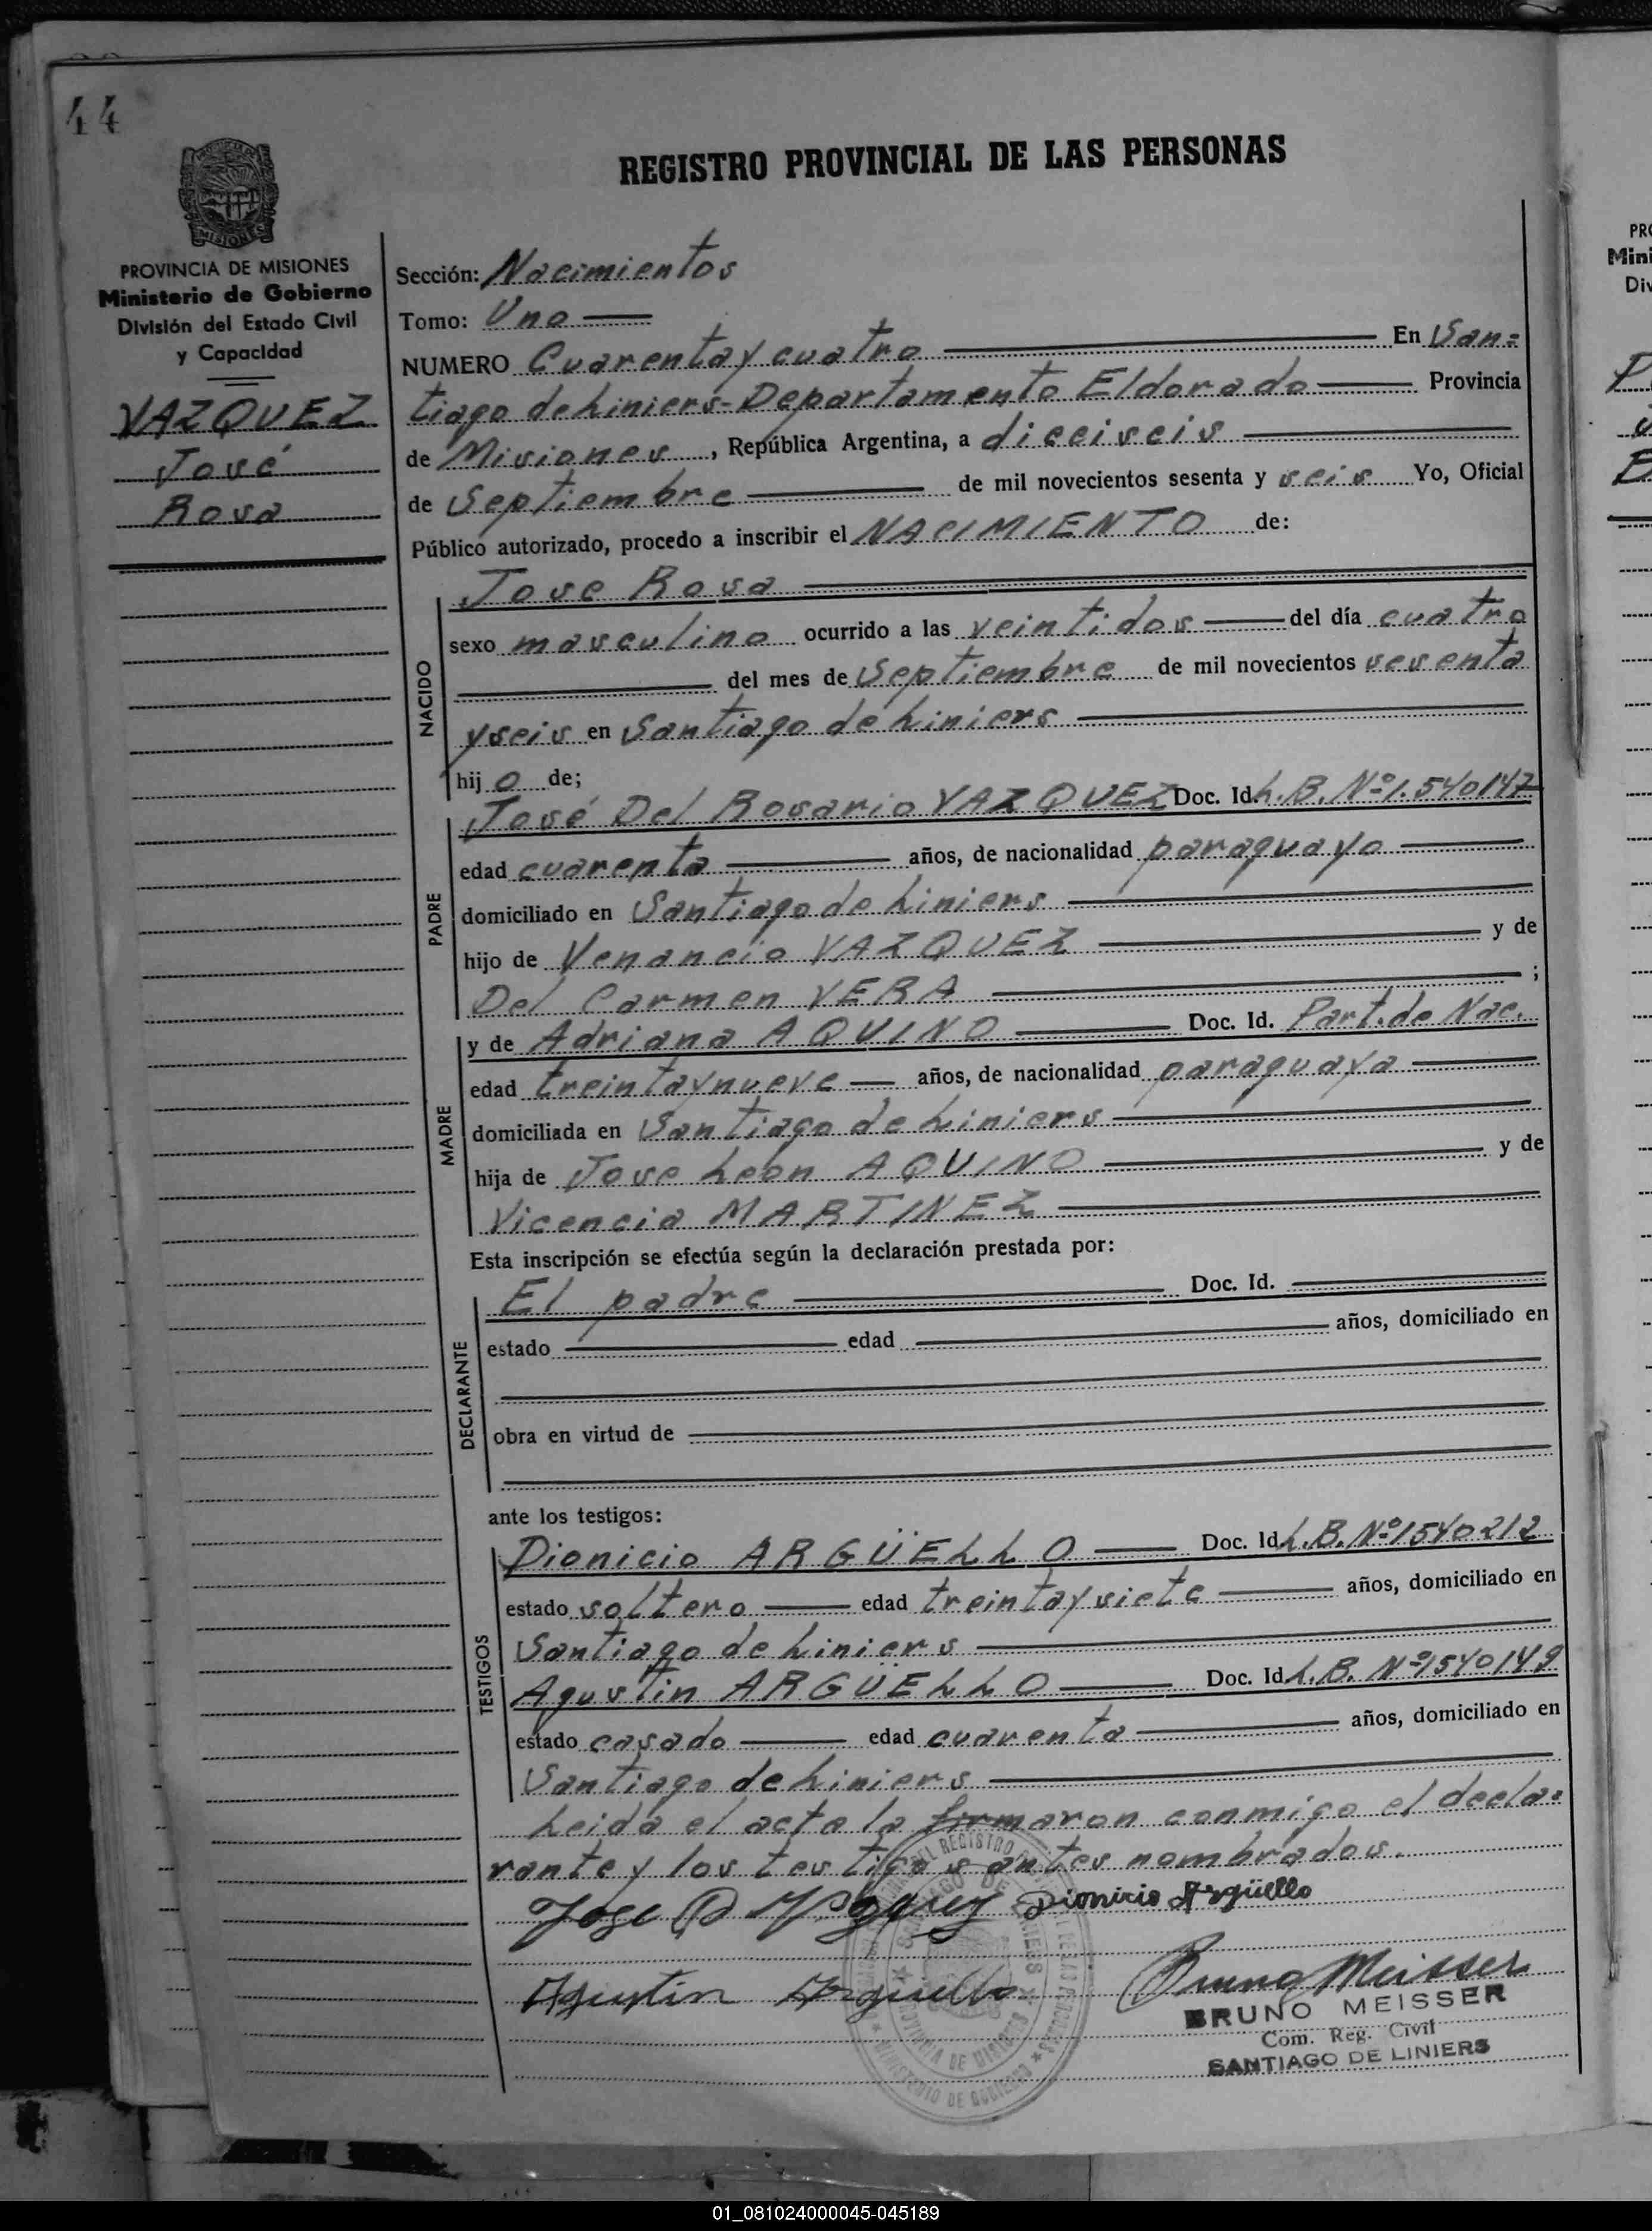 44
REGISTRO PROVINCIAL DE LAS PERSONAS
MISIONES
PROVINCIA DE MISIONES
Ministerio de Gobierno
División del Estado Civil
y Capacidad
VAZQUEZ
José
Rosa
Sección: Nacimientos
Tomo: Uno
NUMERO Cuarenta y cuatro En San=
tiago de Liniers-Departamento Eldorado Provincia
de Misiones, República Argentina, a dieciseis
de Septiembre de mil novecientos sesenta y seis Yo, Oficial
Público autorizado, procedo a inscribir el NACIMIENTO de:
NACIDO
Jose Rosa
sexo masculino ocurrido a las veintidos del día cuatro
del mes de Septiembre de mil novecientos sesenta
y seis en Santiago de Liniers
hij o de;
PADRE
José Del Rosario VAZQUEZ Doc. Id. L.B. Nº 1.540147
edad cuarenta años, de nacionalidad paraguayo
domiciliado en Santiago de Liniers
hijo de Venancio VAZQUEZ y de
Del Carmen VERA ;
MADRE
y de Adriana AQUINO Doc. Id. Part. de Nac.
edad treinta y nueve años, de nacionalidad paraguaya
domiciliada en Santiago de Liniers
hija de Jose Leon AQUINO y de
Vicencia MARTINEZ
Esta inscripción se efectúa según la declaración prestada por:
DECLARANTE
El padre Doc. Id.
estado edad años, domiciliado en
obra en virtud de
ante los testigos:
TESTIGOS
Dionicio ARGÜELLO Doc. Id L.B. Nº 1540212
estado soltero edad treinta y siete años, domiciliado en
Santiago de Liniers
Agustin ARGÜELLO Doc. Id L.B. Nº 1540149
estado casado edad cuarenta años, domiciliado en
Santiago de Liniers
Leida el acta la firmaron conmigo el decla=
rante y los testigos antes nombrados.
Jose D Vazquez Dionicio Argüello
Agustin Argüello Bruno Meisser
BRUNO MEISSER
Com. Reg. Civil
SANTIAGO DE LINIERS
01_081024000045-045189